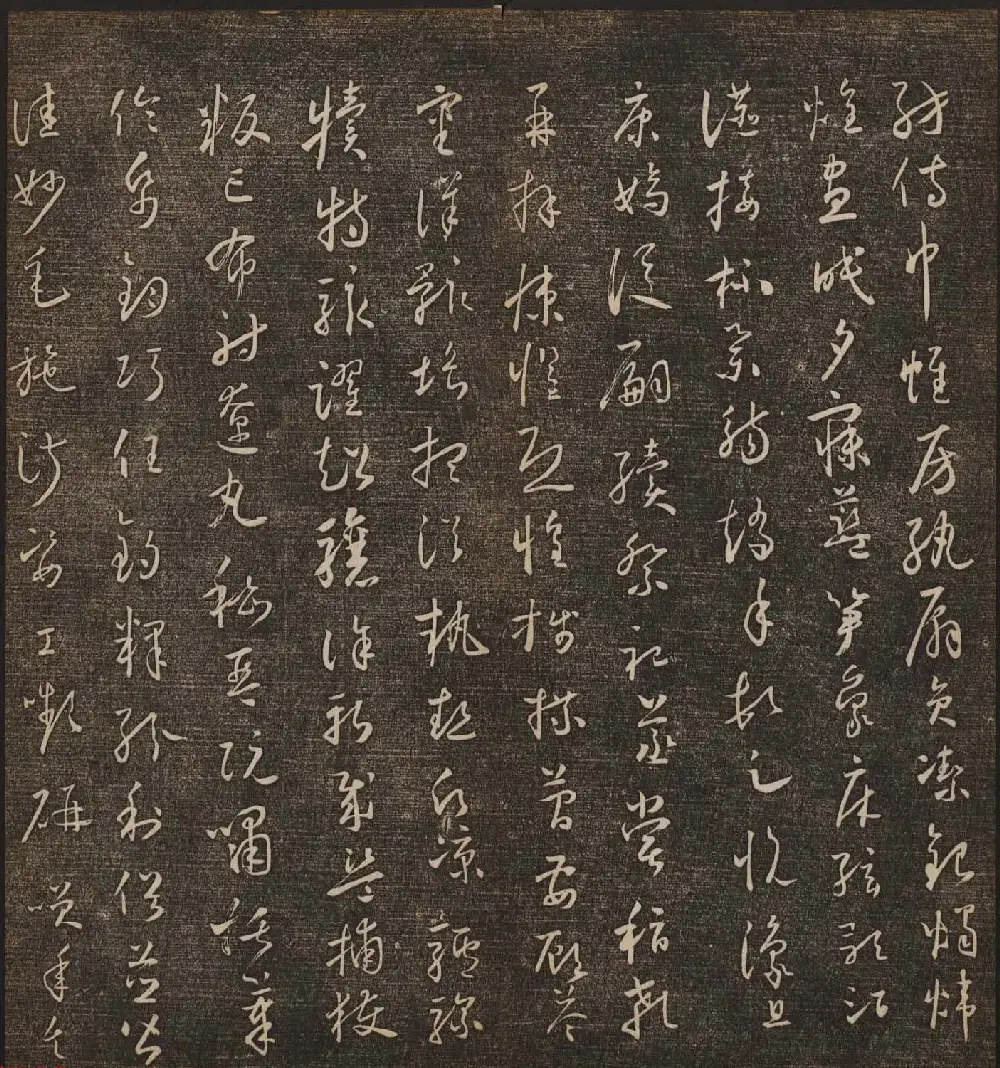 紡侍巾帷房紈扇圓潔銀燭煒
煌晝眠夕寐藍筍象床弦歌酒
讌接杯舉觴矯手頓足悅豫且
康嫡後嗣續祭祀蒸嘗稽顙
再拜悚懼恐惶牋牒簡要顧答
審詳骸垢想浴執熱願涼驢騾
犢特駭躍超驤誅斬賊盜捕獲
叛亡布射遼丸嵇琴阮嘯恬筆
倫紙鈞巧任釣釋紛利俗並皆
佳妙毛施淑姿工顰妍笑年矢